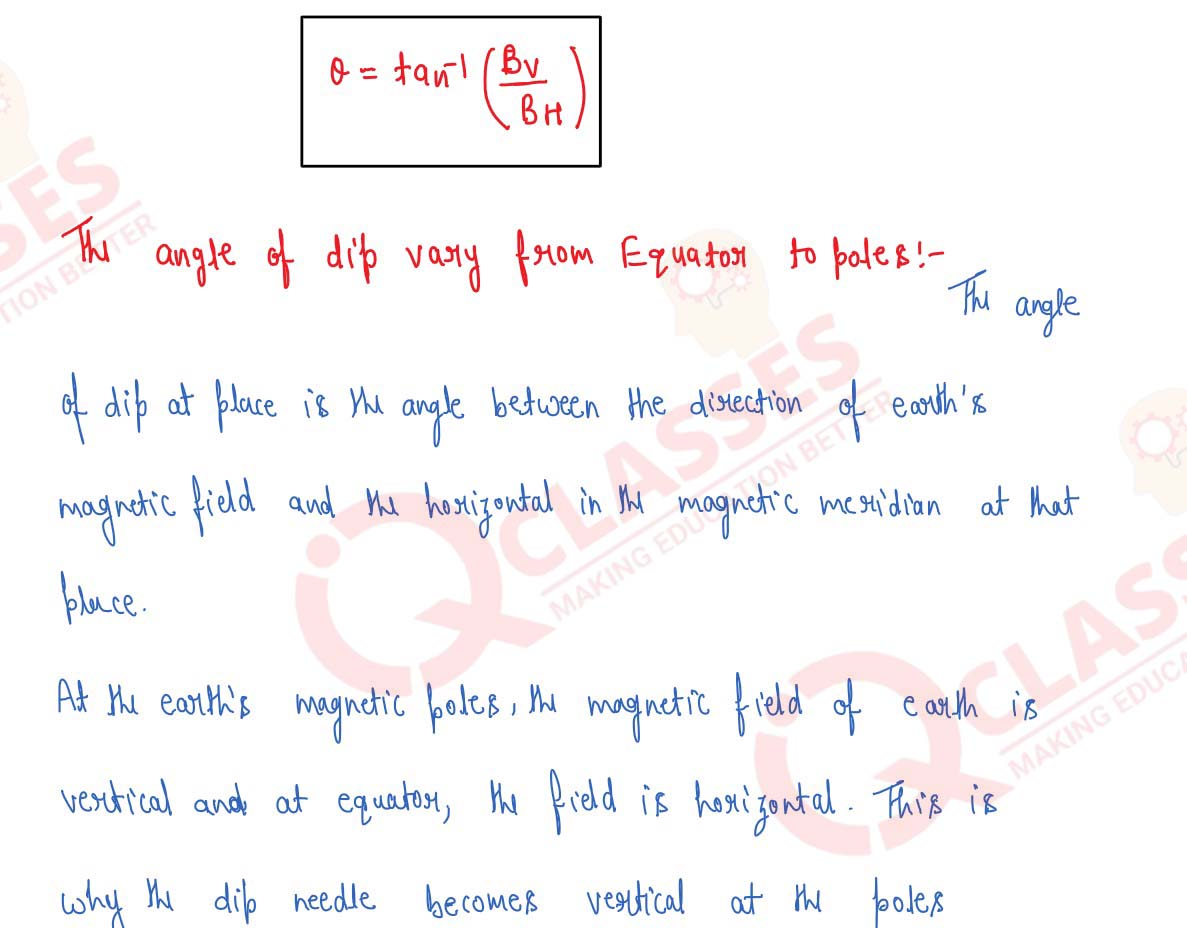 θ = tan⁻¹ (Bv / BH)
The angle of dip vary from Equator to poles:-
The angle
of dip at place is the angle between the direction of earth's
magnetic field and the horizontal in the magnetic meridian at that
place.
At the earth's magnetic poles, the magnetic field of earth is
vertical and at equator, the field is horizontal. This is
why the dip needle becomes vertical at the poles
SSES
TION BETTER
QCLASSES
MAKING EDUCATION BETTER
QCLASSES
MAKING EDUCA